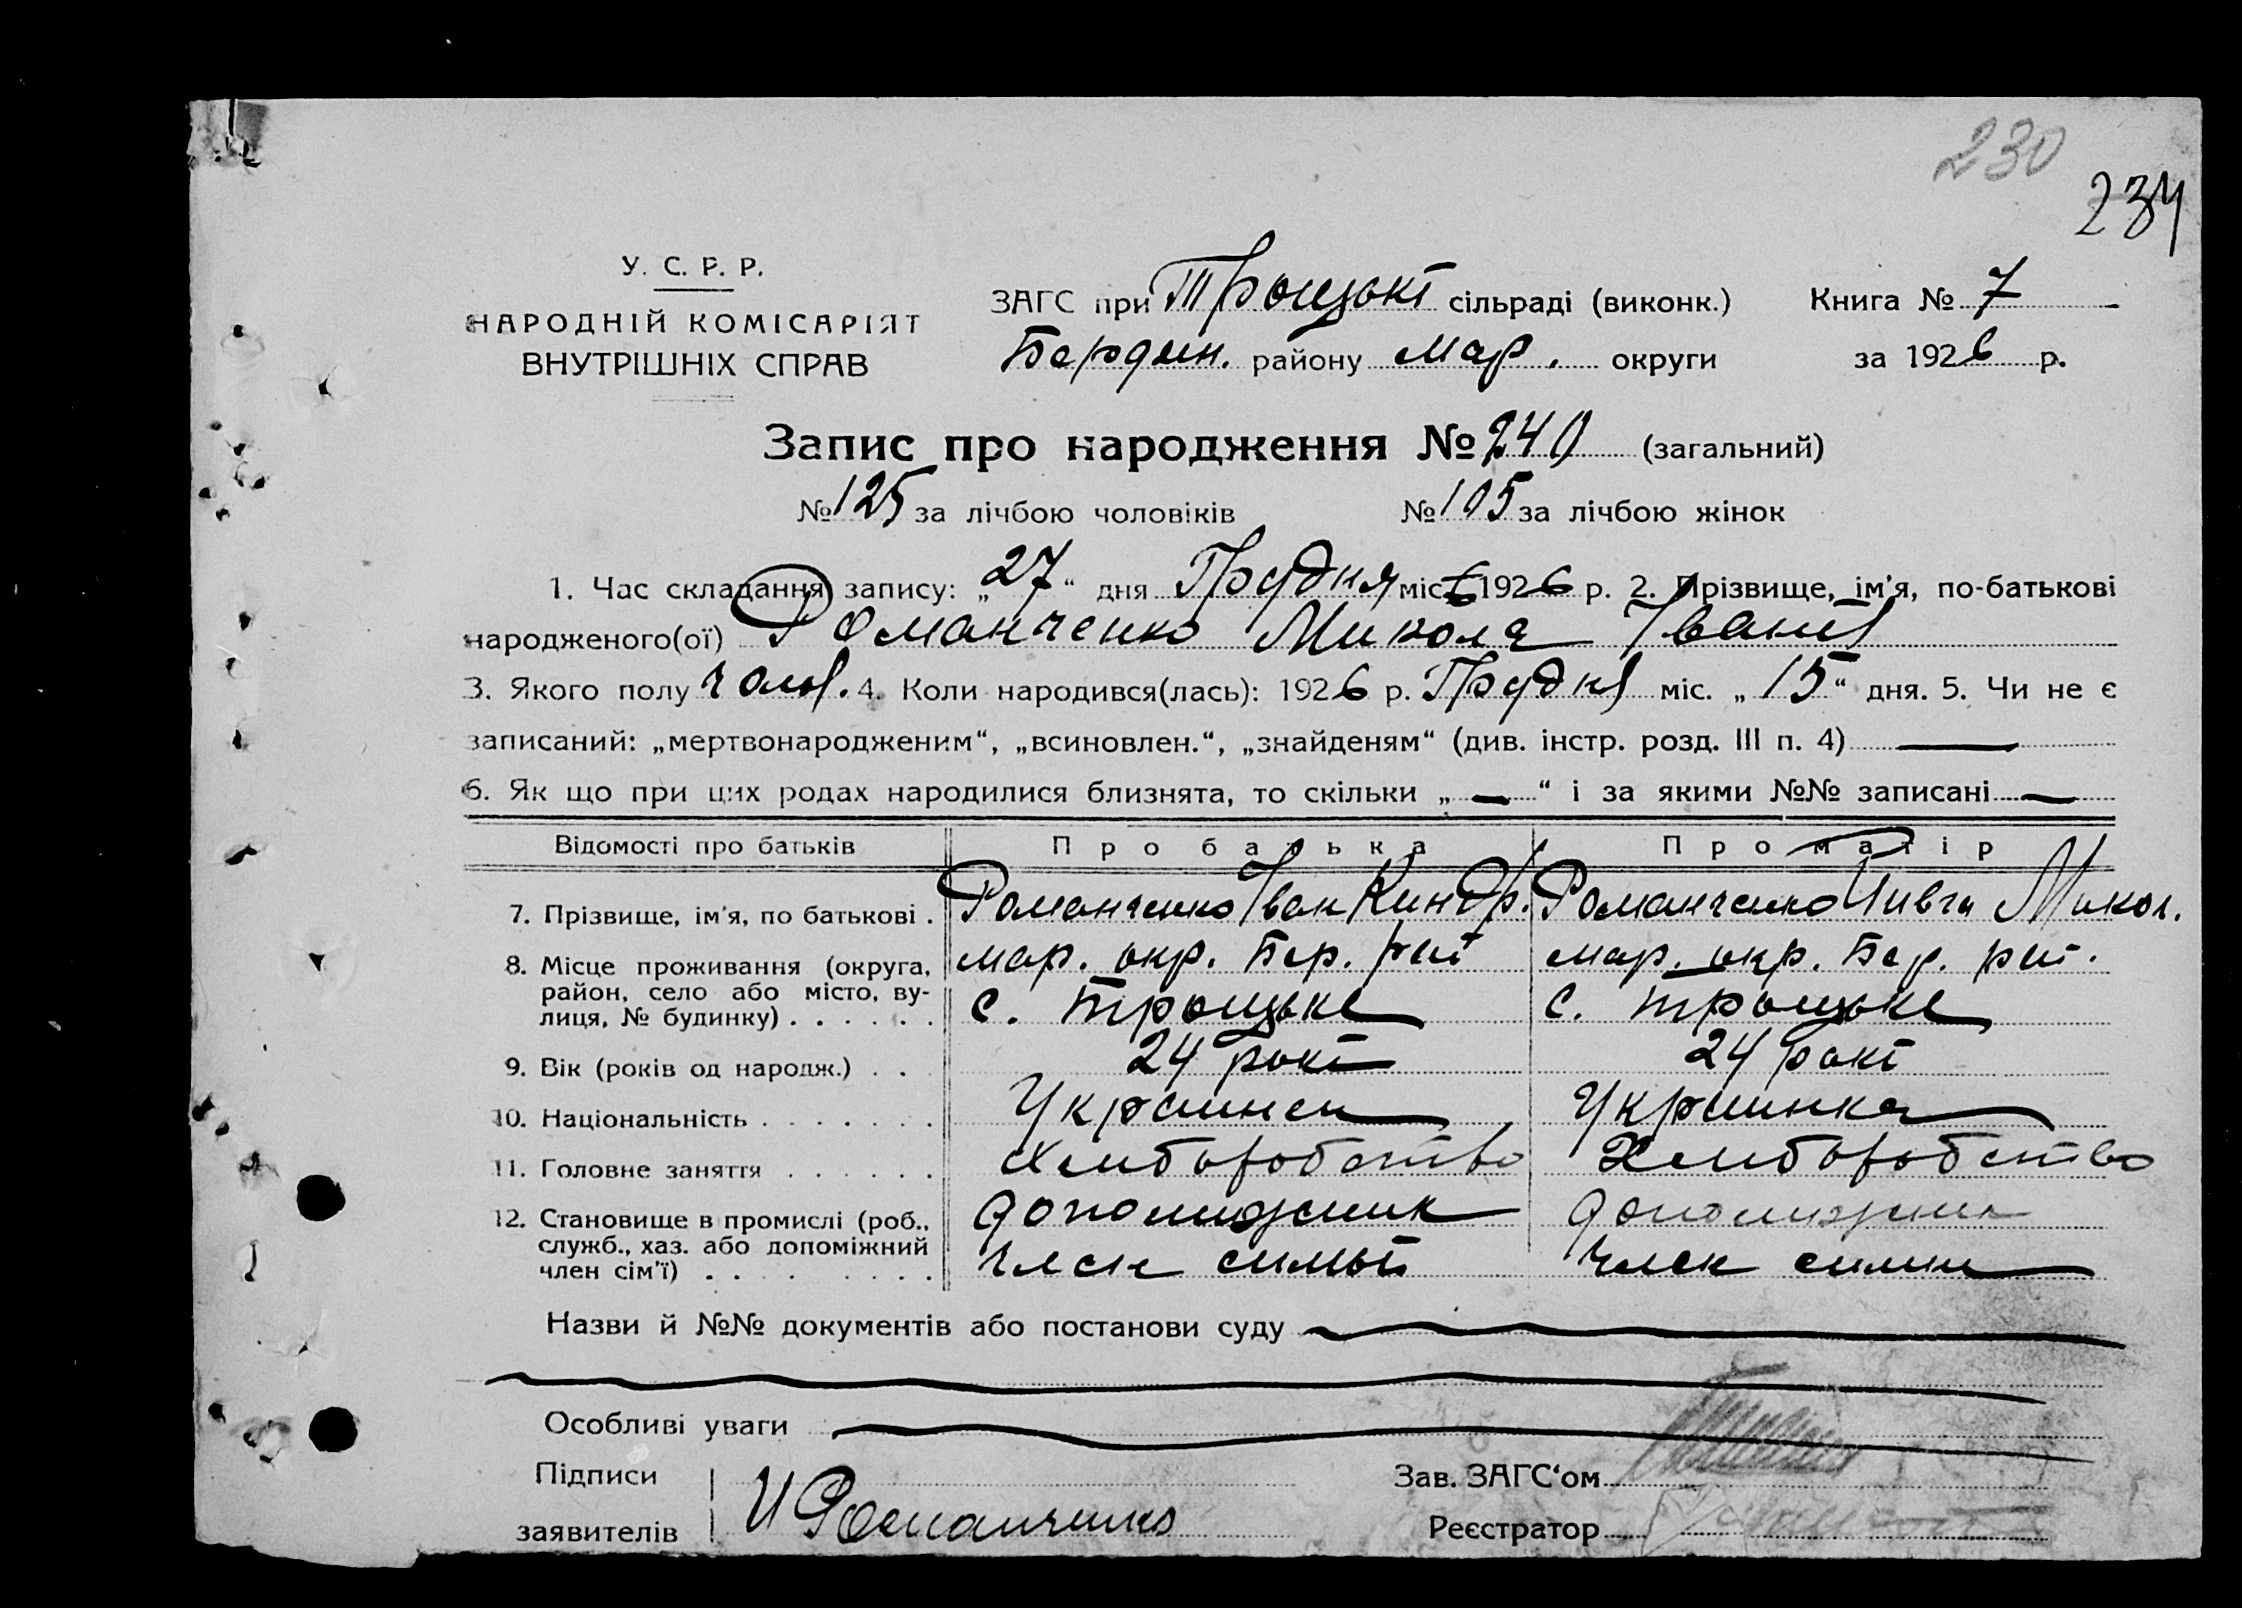 230
234
У. С. Р. Р.
НАРОДНІЙ КОМІСАРІЯТ
ВНУТРІШНІХ СПРАВ
ЗАГС при Троцькі сільраді (виконк.) Книга № 7
Бердян. району Мар. округи за 1926 р.
Запис про народження № 240 (загальний)
№ 125 за лічбою чоловіків № 105 за лічбою жінок
1. Час складання запису: „27“ дня Грудня міс. 1926 р. 2. Прізвище, ім'я, по-батькові
народженого(ої) Романченко Микола Іванів
3. Якого полу чолов. 4. Коли народився(лась): 1926 р. Грудня міс. „15“ дня. 5. Чи не є
записаний: „мертвонародженим“, „всиновлен.“, „знайденям“ (див. інстр. розд. III п. 4) —
6. Як що при цих родах народилися близнята, то скільки „—“ і за якими №№ записані —
Відомості про батьків Про батька Про матір
7. Прізвище, ім'я, по батькові . Романченко Іван Киндр. Романченко Микол.
8. Місце проживання (округа, мар. окр. Бер. рай мар. окр. Бер. рай.
район, село або місто, ву- с. Троцьке с. Троцьке
лиця, № будинку) . . . . . .
9. Вік (років од народж.) . . . 24 рокі 24 рокі
10. Національність . . . . . . . Украинец Украинка
11. Головне заняття . . . . . . Хлиборобство Хлиборобство
12. Становище в промислі (роб., допомижник допомижник
служб., хаз. або допоміжний член симьи член симьи
член сім'ї) . . . . . . . .
Назви й №№ документів або постанови суду
Особливі уваги
Підписи
заявителів И Романченко
Зав. ЗАГС'ом
Реєстратор